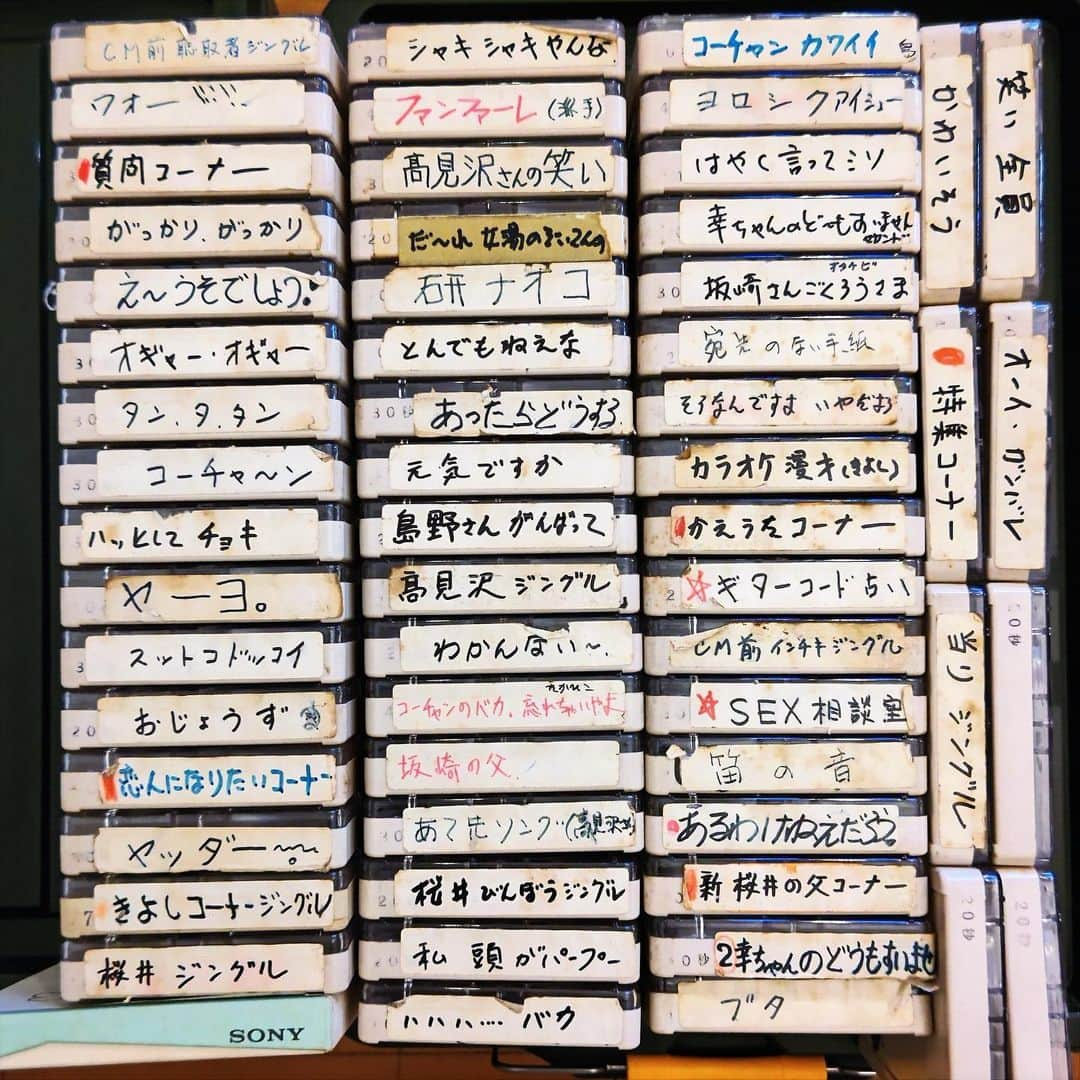 CM前聴取者ジングル
ワォー
質問コーナー
がっかり、がっかり
30
え〜うそでしょう
オギャー・オギャー
30
タン、タ、タン
コーチャ〜ン
30
ハッとして チョキ
ヤーヨ。
スットコドッコイ
おじょうず
20
恋人になりたいコーナー
ヤッダー〜
きよしコーナージングル
7
桜井 ジングル
SONY
シャキシャキやんな
20
ファンファーレ(派手)
高見沢さんの笑い
だ〜れ 女湯の
20
研ナオコ
とんでもねえな
あったらどうする
30秒
元気ですか
島野さんがんばって
高見沢ジングル
わかんない〜.
コーチャンのバカ、忘れちゃいやよ
坂崎の父.
あて先ソング(高見沢
桜井びんぼうジングル
私 頭がパープー
ハハハ.... バカ
コーチャン カワイイ 島
ヨロシクアイシュー
はやく言ってミソ
幸ちゃんのど〜もすいません
セカンド
坂崎さんごくろうさま
30
宛先のない手紙
2
そうなんですよ いやぞお
カラオケ漫才(きよし)
かえうたコーナー
☆ギターコード占い
2
CM前インチキジングル
☆SEX相談室
笛の音
あるわけねえだろ?
新桜井の父コーナー
2幸ちゃんのどうもすいませ
0秒
ブタ
かわいそう
特集コーナー
当り ジングル
20秒
笑い 全員
オーイ、ガンバレ
20秒
20秒